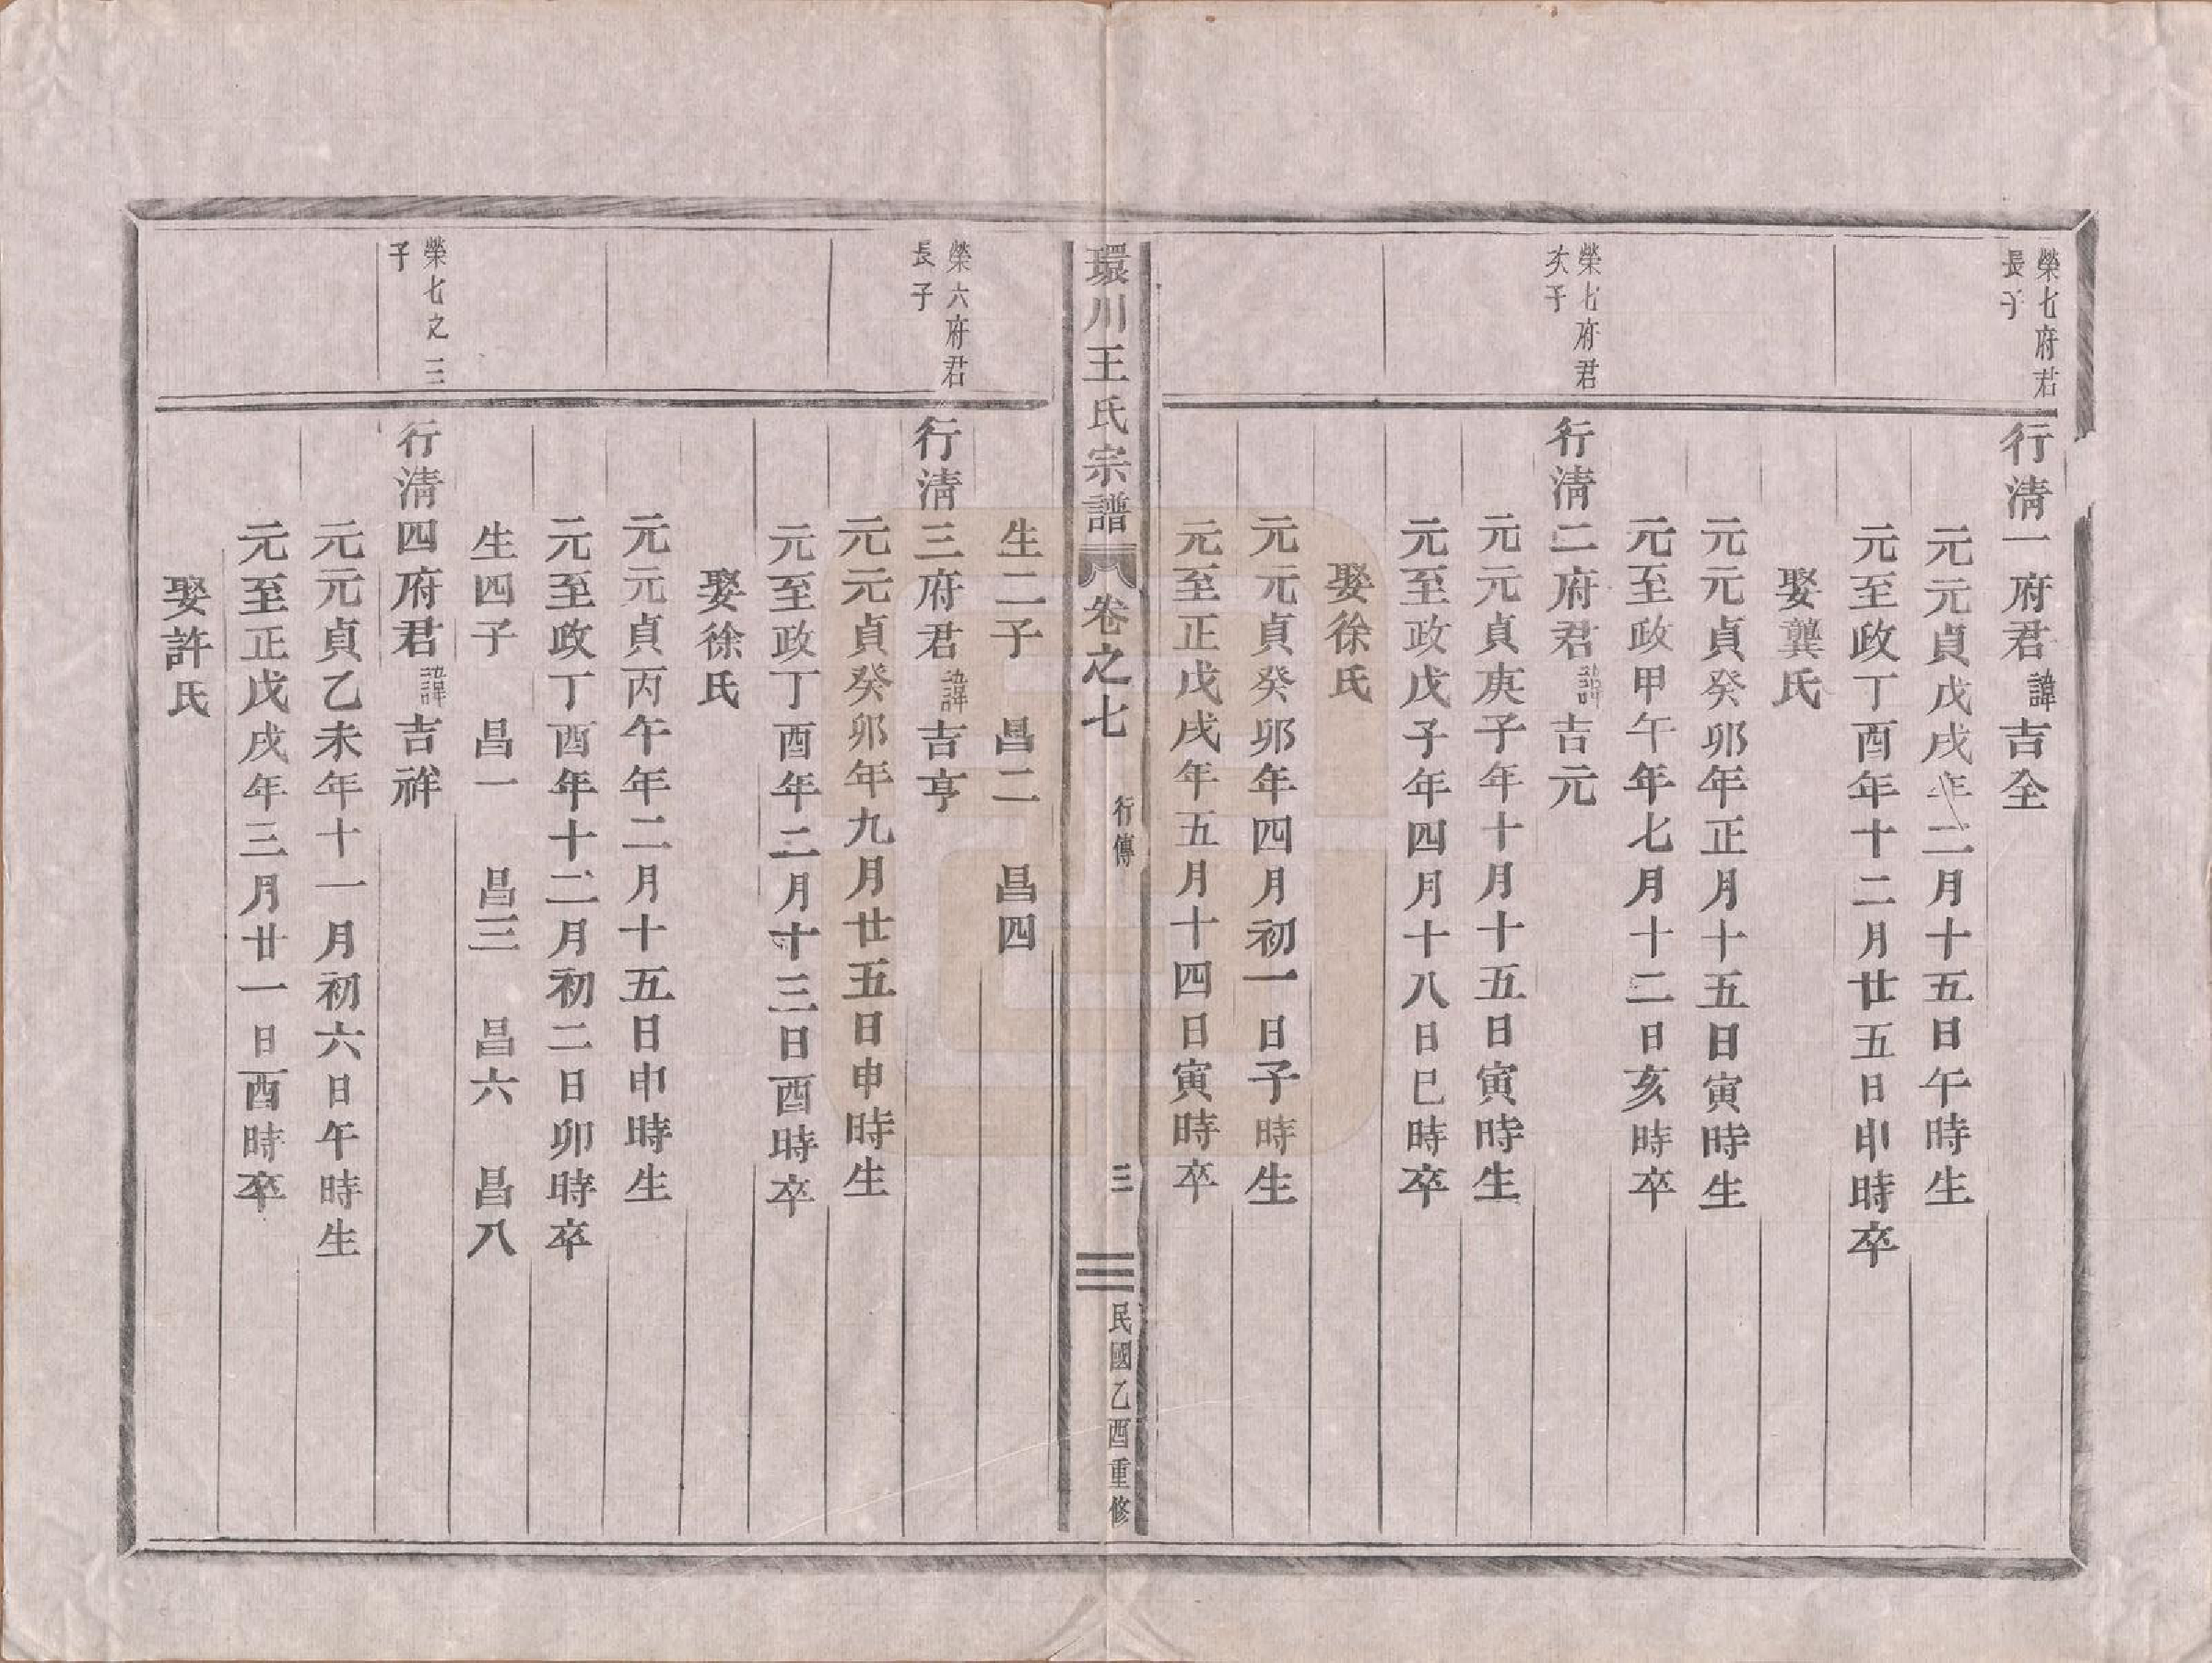 榮七府君
長子
行淸一府君諱吉全
元元貞戊戌年二月十五日午時生
元至政丁酉年十二月廿五日申時卒
娶龔氏
元元貞癸卯年正月十五日寅時生
元至政甲午年七月十二日亥時卒
榮七府君
次子
行淸二府君諱吉元
元元貞庚子年十月十五日寅時生
元至政戊子年四月十八日巳時卒
娶徐氏
元元貞癸卯年四月初一日子時生
元至正戊戌年五月十四日寅時卒
環川王氏宗譜 卷之七 行傳 三 民國乙酉重修
生二子 昌二 昌四
榮六府君
長子
行淸三府君諱吉亨
元元貞癸卯年九月廿五日申時生
元至政丁酉年二月十三日酉時卒
娶徐氏
元元貞丙午年二月十五日申時生
元至政丁酉年十二月初二日卯時卒
生四子 昌一 昌三 昌六 昌八
榮七之三
子
行淸四府君諱吉祥
元元貞乙未年十一月初六日午時生
元至正戊戌年三月廿一日酉時卒
娶許氏